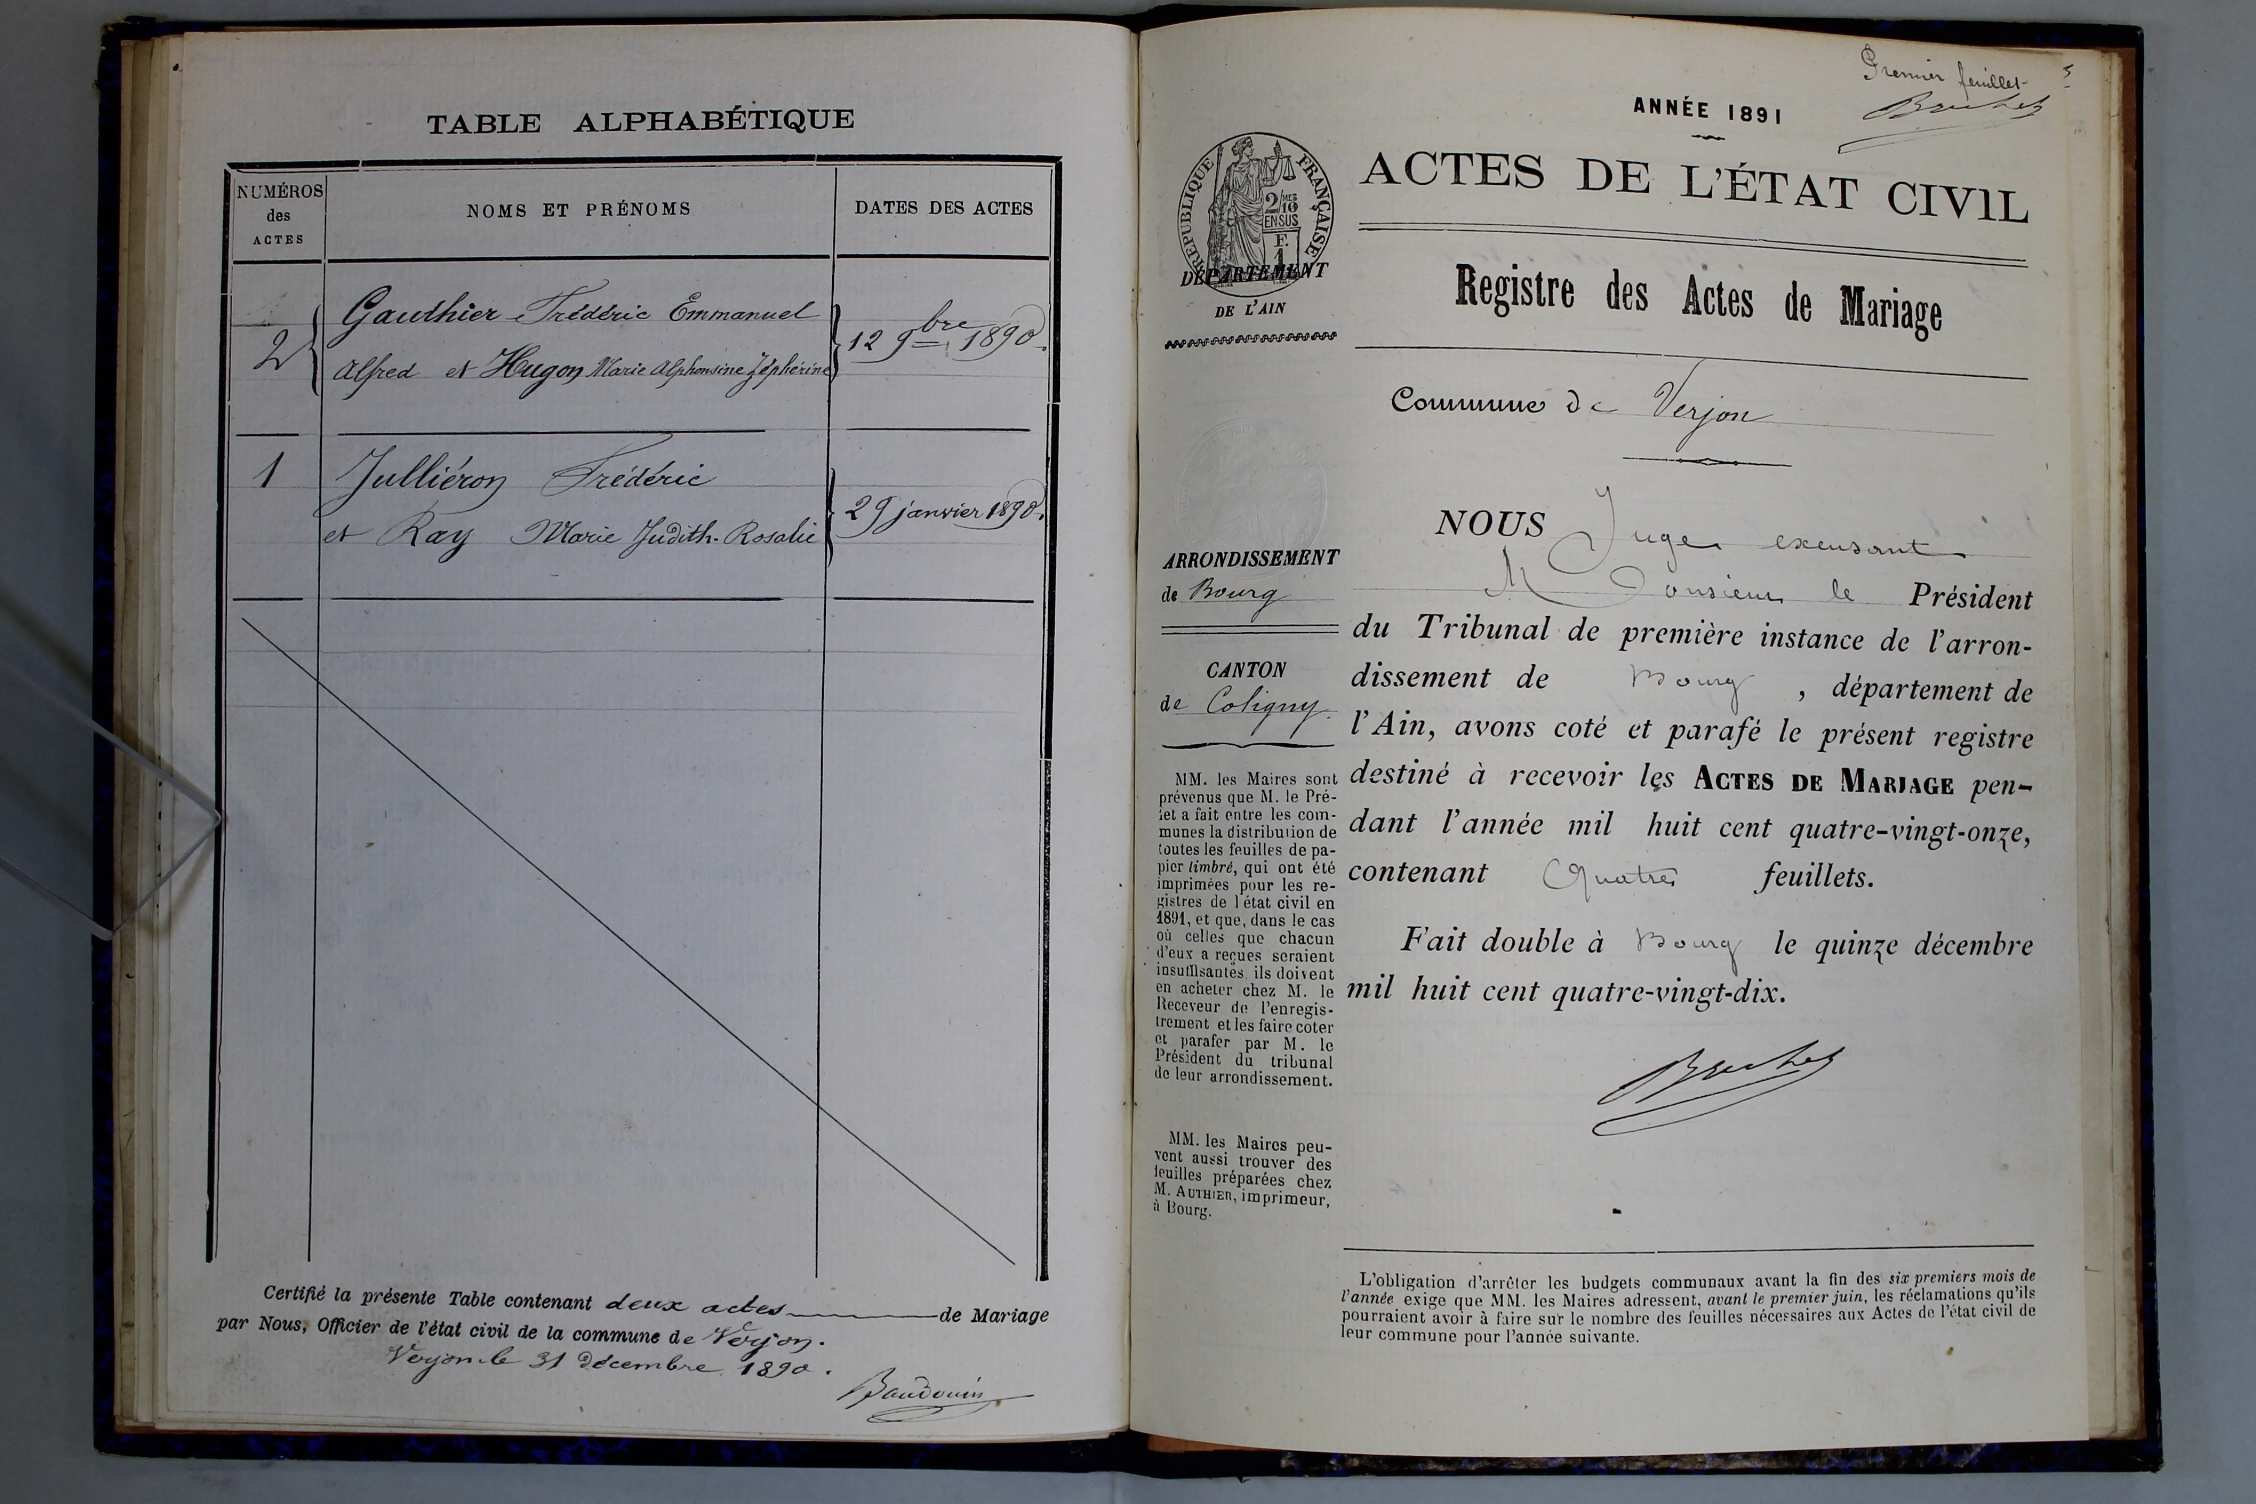 TABLE ALPHABÉTIQUE
NUMÉROS
des
ACTES
NOMS ET PRÉNOMS
DATES DES ACTES
2
Gauthier Frédéric Emmanuel
Alfred et Hugon Marie Alphonsine Zéphérine
12 9bre 1890.
1
Julliéron Frédéric
et Ray Marie Judith-Rosalie
29 janvier 1890.
Certifié la présente Table contenant deux actes de Mariage
par Nous, Officier de l'état civil de la commune de Verjon.
Verjon le 31 décembre 1890.
Baudouin
Premier feuillet
ANNÉE 1891
ACTES DE L'ÉTAT CIVIL
RÉPUBLIQUE FRANÇAISE
2/10 MES
EN SUS
F.
1
DÉPARTEMENT
DE L'AIN
Registre des Actes de Mariage
Commune de Verjon
ARRONDISSEMENT
de Bourg
CANTON
de Coligny.
MM. les Maires sont
prévenus que M. le Pré-
fet a fait entre les com-
munes la distribution de
toutes les feuilles de pa-
pier timbré, qui ont été
imprimées pour les re-
gistres de l'état civil en
1891, et que, dans le cas
où celles que chacun
d'eux a reçues seraient
insuffisantes, ils doivent
en acheter chez M. le
Receveur de l'enregis-
trement et les faire coter
et parafer par M. le
Président du tribunal
de leur arrondissement.
MM. les Maires peu-
vent aussi trouver des
feuilles préparées chez
M. AUTHIER, imprimeur,
à Bourg.
NOUS Juge excusant
Monsieur le Président
du Tribunal de première instance de l'arron-
dissement de Bourg, département de
l'Ain, avons coté et parafé le présent registre
destiné à recevoir les ACTES DE MARIAGE pen-
dant l'année mil huit cent quatre-vingt-onze,
contenant Quatre feuillets.
Fait double à Bourg le quinze décembre
mil huit cent quatre-vingt-dix.
L'obligation d'arrêter les budgets communaux avant la fin des six premiers mois de
l'année exige que MM. les Maires adressent, avant le premier juin, les réclamations qu'ils
pourraient avoir à faire sur le nombre des feuilles nécessaires aux Actes de l'état civil de
leur commune pour l'année suivante.